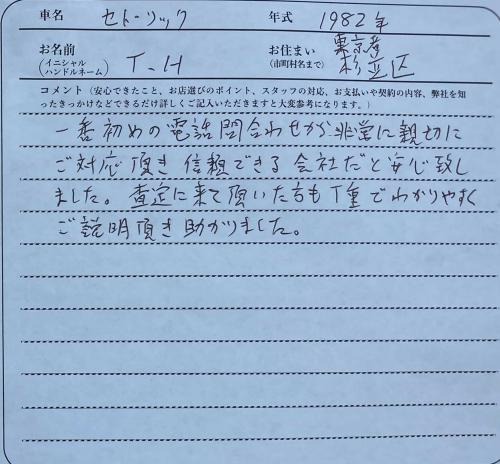 車名 セドリック 年式 1982年
お名前 (イニシャル ハンドルネーム) T.H お住まい (市町村名まで) 東京都 杉並区
コメント (安心できたこと、お店選びのポイント、スタッフの対応、お支払いや契約の内容、弊社を知
ったきっかけなどできるだけ詳しくご記入いただきますと大変参考になります。)
一番初めの電話問合わせから非常に親切に
ご対応頂き信頼できる会社だと安心致し
ました。査定に来て頂いた方も丁重でわかりやすく
ご説明頂き助かりました。